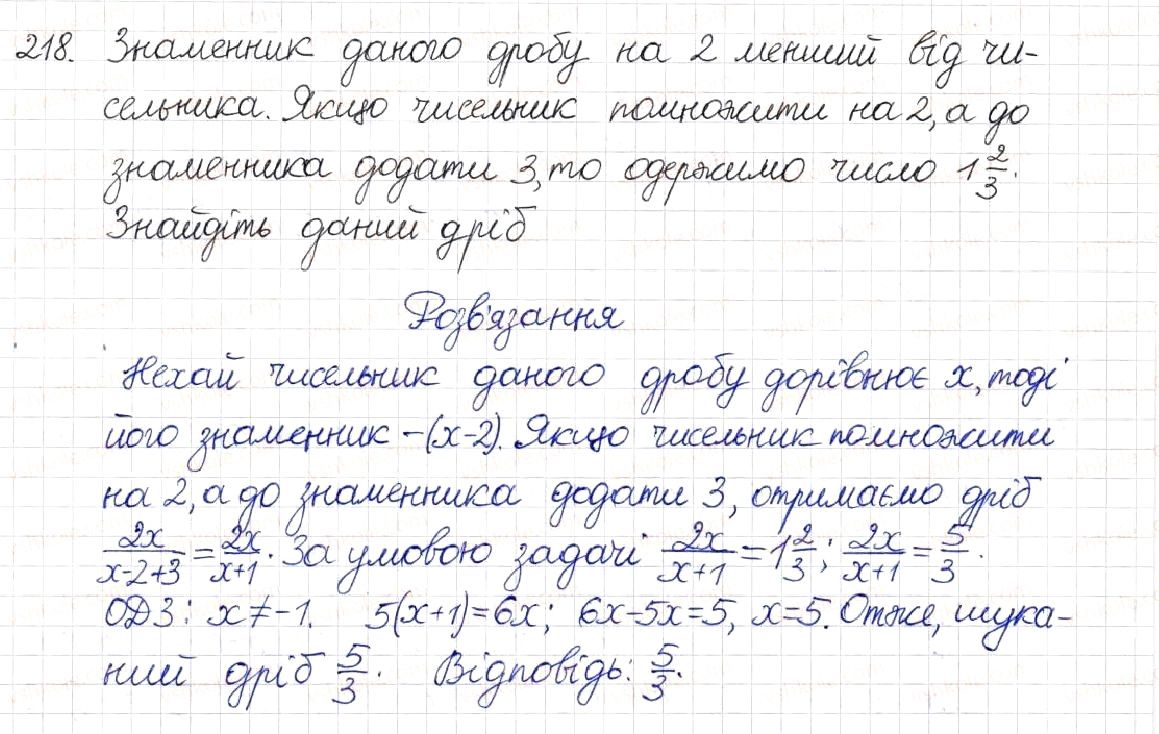 218. Знаменник даного дробу на 2 менший від чи-
сельника. Якщо чисельник помножити на 2, а до
знаменника додати 3, то одержимо число 1 2/3.
Знайдіть даний дріб
Розв'язання
Нехай чисельник даного дробу дорівнює x, тоді
його знаменник – (x-2). Якщо чисельник помножити
на 2, а до знаменника додати 3, отримаємо дріб
2x/(x-2+3) = 2x/(x+1). За умовою задачі 2x/(x+1) = 1 2/3; 2x/(x+1) = 5/3.
ОДЗ: x ≠ -1. 5(x+1)=6x; 6x-5x=5, x=5. Отже, шука-
ний дріб 5/3. Відповідь: 5/3.